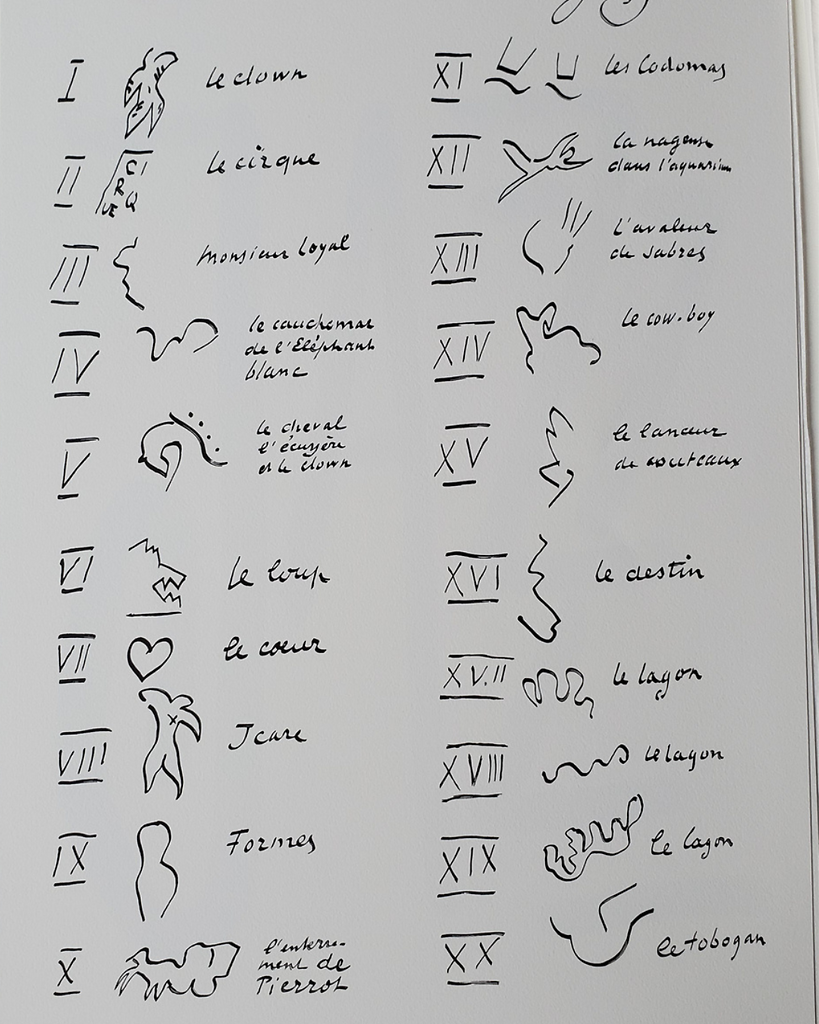 I le clown
II CIRQUE le cirque
III Monsieur Loyal
IV le cauchemar
de l'Eléphant
blanc
V le cheval
l'écuyère
et le clown
VI le loup
VII le coeur
VIII Icare
IX Formes
X l'enterre-
ment de
Pierrot
XI les Codomas
XII la nageuse
dans l'aquarium
XIII l'avaleur
de sabres
XIV le cow-boy
XV le lanceur
de couteaux
XVI le destin
XVII le lagon
XVIII le lagon
XIX le lagon
XX le tobogan